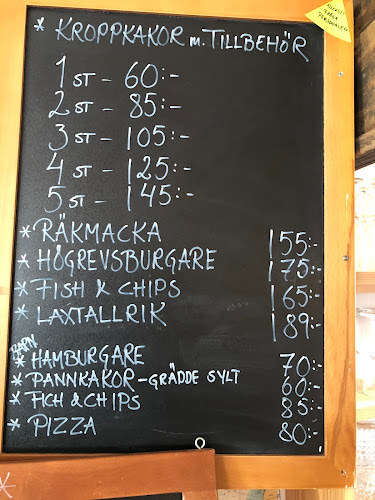 * KROPPKAKOR m. TILLBEHÖR
1 ST - 60:-
2 ST - 85:-
3 ST - 105:-
4 ST - 125:-
5 ST - 145:-
* RÄKMACKA 155:-
* HÖGREVSBURGARE 175:-
* FISH & CHIPS 165:-
* LAXTALLRIK 189:-
BARN
* HAMBURGARE 70:-
* PANNKAKOR - GRÄDDE SYLT 60:-
* FICH & CHIPS 85:-
* PIZZA 80:-